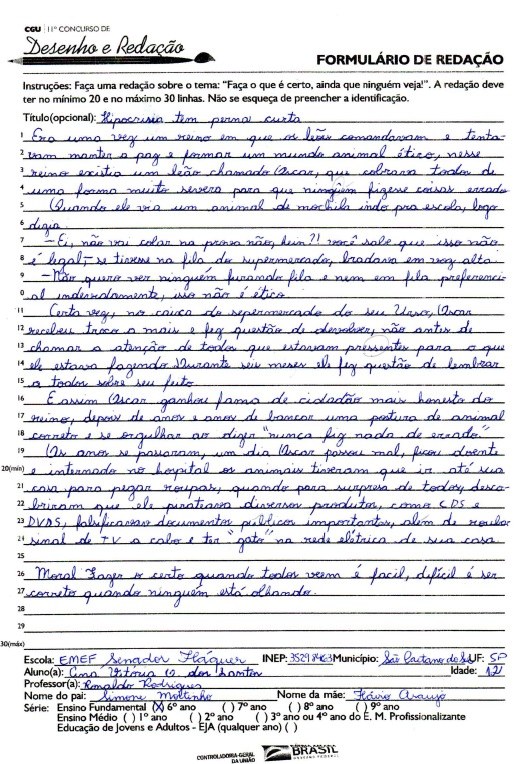 CGU | 11º CONCURSO DE
Desenho e Redação
FORMULÁRIO DE REDAÇÃO
Instruções: Faça uma redação sobre o tema: "Faça o que é certo, ainda que ninguém veja!". A redação deve
ter no mínimo 20 e no máximo 30 linhas. Não se esqueça de preencher a identificação.
Título(opcional): Hipocrisia tem perna curta
1 Era uma vez um reino em que os leões comandavam e tenta-
2 vam manter a paz e formar um mundo animal ético, nesse
3 reino existia um leão chamado Oscar, que cobrava todos de
4 uma forma muito severa para que ninguém fizesse coisas errado
5 Quando ele via um animal de mochila indo pra escola, logo
6 dizia:
7 – Ei, não vai colar na prova não, hein?! você sabe que isso não
8 é legal; – se tivesse na fila do supermercado, bradava em voz alta:
9 – Não quero ver ninguém furando fila e nem em fila preferenci
0 al indevidamente, isso não é ético.
11 Certa vez, no caixa do supermercado do seu Urso, Oscar
12 recebeu troco a mais e fez questão de devolver, não antes de
13 chamar a atenção de todos que estavam pressentes para o que
14 ele estava fazendo. Durante seis meses ele fez questão de lembrar
15 a todos sobre seu feito.
16 E assim Oscar ganhou fama de cidadão mais honesto do
17 reino, depois de anos e anos de bancar uma postura de animal
18 correto e se orgulhar ao dizer "nunca fiz nada de errado".
19 Os anos se passaram, um dia Oscar passou mal, ficou doente
20(min) e internado no hospital os animais tiveram que ir até sua
21 casa para pegar roupas, quando para surpresa de todos, desco-
22 briram que ele pirateava diversos produtos, como CDS e
23 DVDS, falsificavao documentos públicos importantes, além de roubar
24 sinal de TV a cabo e ter "gato" na rede elétrica de sua casa
25
26 Moral: Fazer o certo quando todos veem é facil, difícil é ser
27 correto quando ninguém está olhando.
28
29
30(máx)
Escola: EMEF Senador Fláquer INEP: Município: São Caetano do Sul UF: SP
Aluno(a): Ana Vitória dos Santos Idade: 12
Professor(a): Ronaldo Rodrigues
Nome do pai: Simone Moitinho Nome da mãe: Flávio Araujo
Série: Ensino Fundamental (X) 6º ano ( ) 7º ano ( ) 8º ano ( ) 9º ano
Ensino Médio ( ) 1º ano ( ) 2º ano ( ) 3º ano ou 4º ano do E. M. Profissionalizante
Educação de Jovens e Adultos - EJA (qualquer ano) ( )
CONTROLADORIA-GERAL
DA UNIÃO
BRASIL
GOVERNO FEDERAL